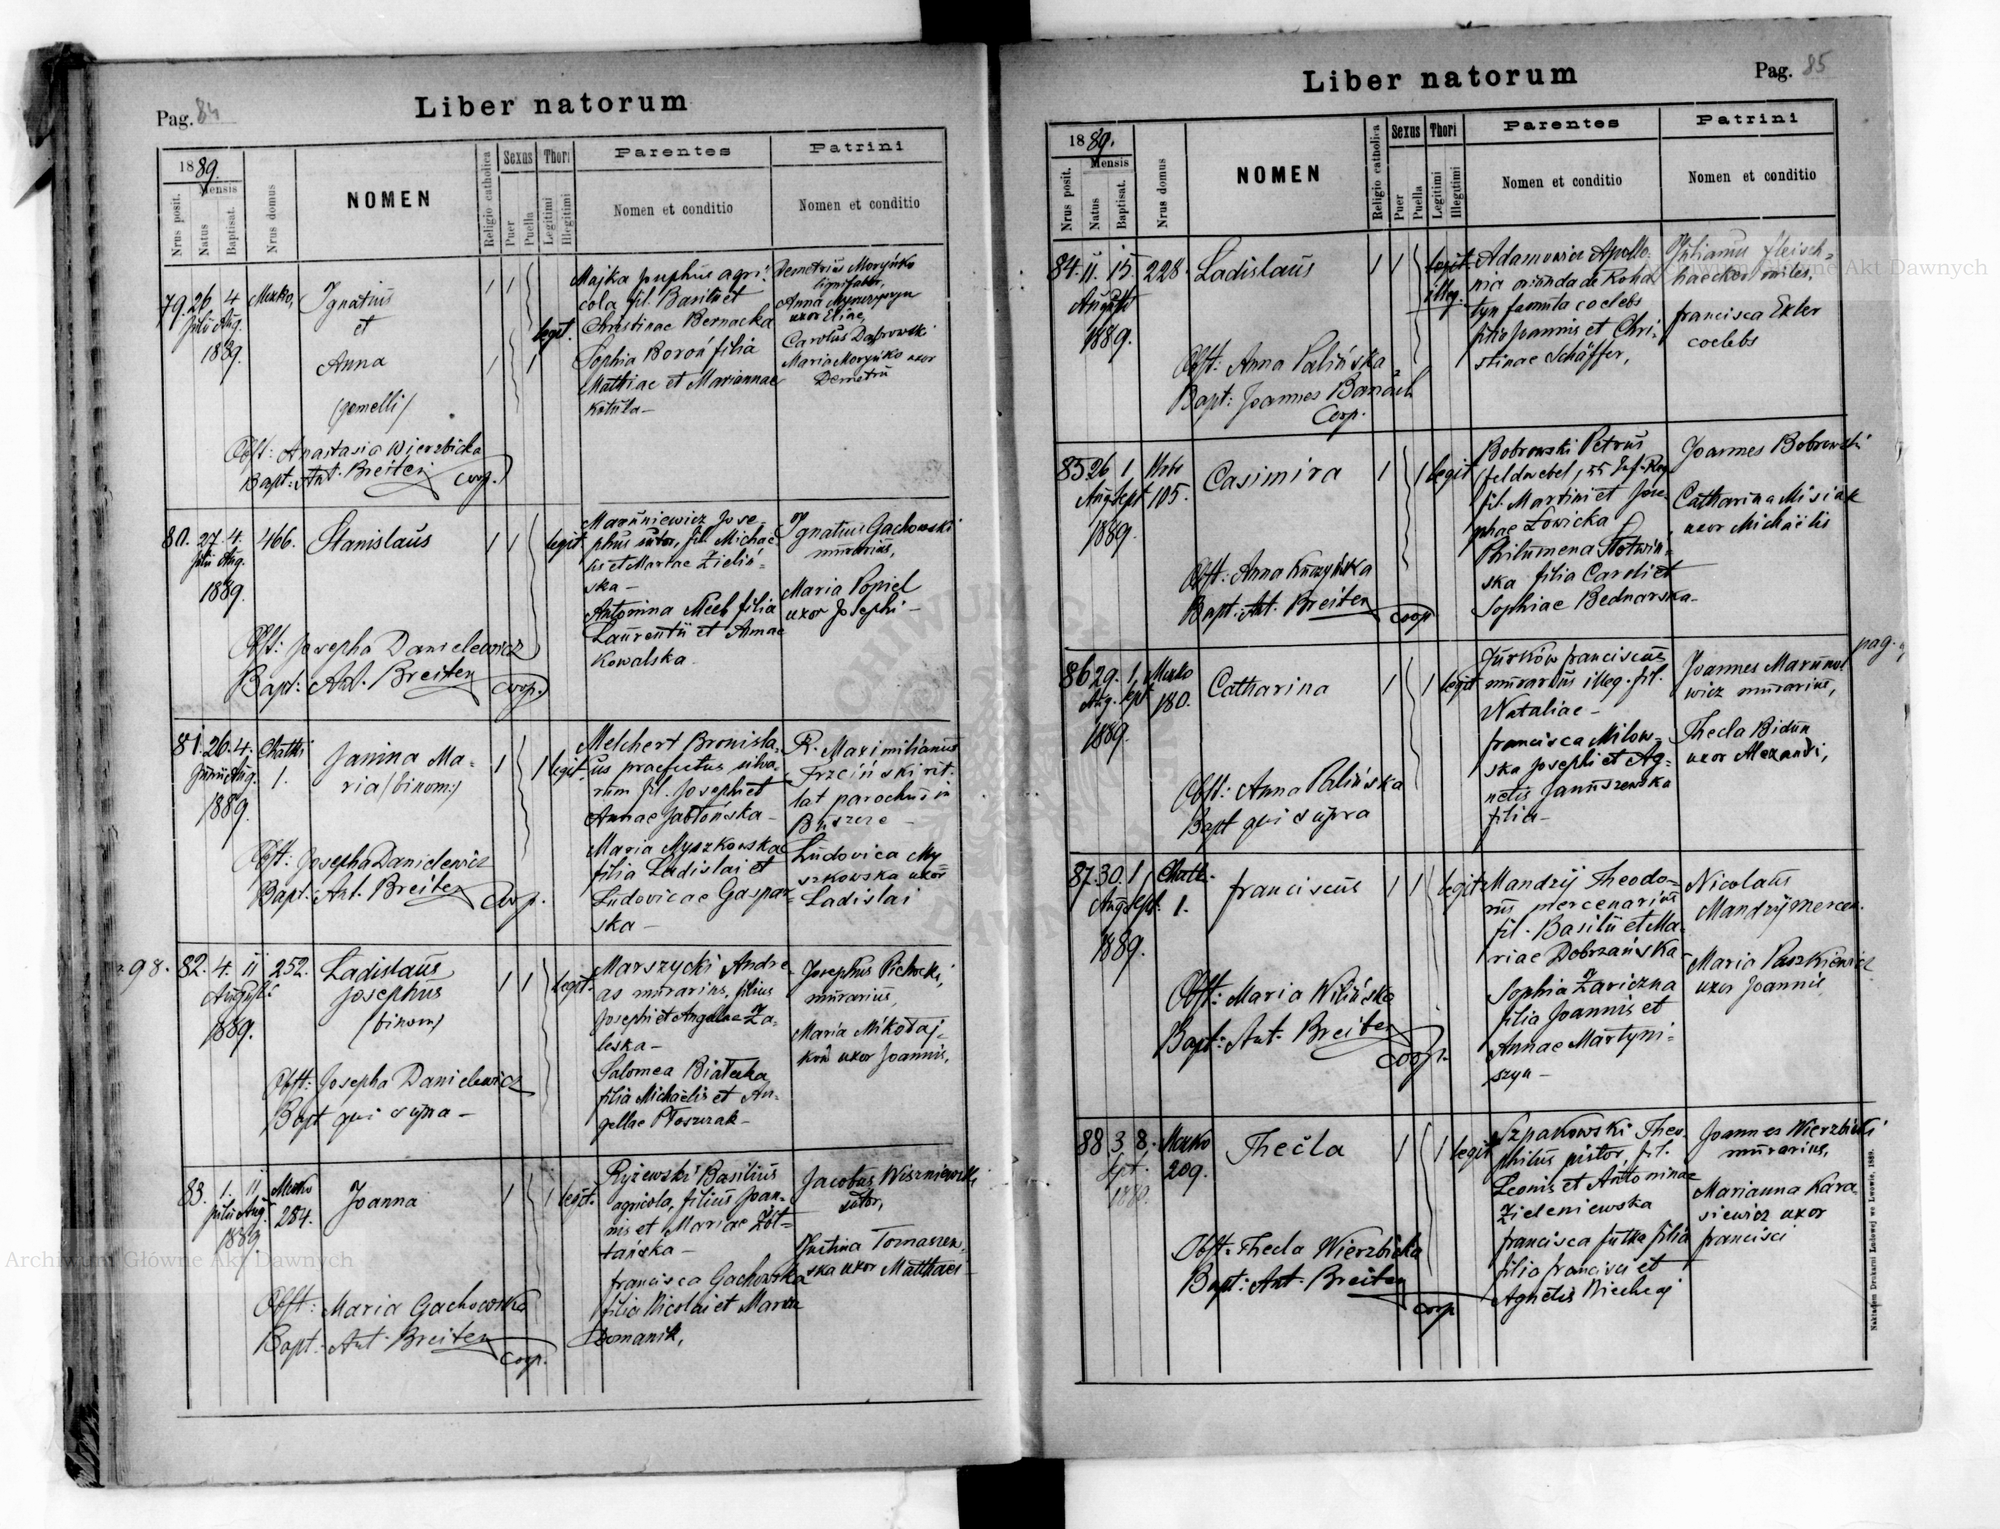 Pag. 84
Liber natorum
1889.
Mensis
Nrus posit.
Natus
Baptisat.
Nrus domus
NOMEN
Religio catholica
Sexus
Puer
Puella
Thori
Legitimi
Illegitimi
Parentes
Nomen et conditio
Patrini
Nomen et conditio
79. 26 4
Julii Aug.
1889.
Ignatius
et
Anna
(gemelli)
Obst: Anastasia Wierzbicka
Bapt: Ant. Breiter coop.
legit.
Majka agri-
cola fil. Basilii et
Christinae Bernacka
Sophia Boroń filia
Mathiae et Mariannae
Kotula
Demetrius Moryńko
Anna
uxor Eliae,
Carolus Dąbrowski
Maria Moryńko uxor
Demetrii
80. 27. 4. 466.
Julii Aug.
1889.
Stanislaus
Obst: Josepha Danielewicz
Bapt: Ant. Breiter coop.
legit.
Maruniewicz Jose-
phus sutor, fil. Michae-
lis et Mariae Zieliń-
ska -
Antonina Meeb filia
Laurentii et Annae
Kowalska
Ignatius Gachowski
murarius,
Maria Popiel
uxor Josephi -
81. 26. 4. Chatki
Junii Aug. 1.
1889.
Janina Ma-
ria (binom.)
Obst: Josepha Danielewicz
Bapt: Ant. Breiter Coop.
legit.
Melchert Bronisla-
us praefectus silva-
rum fil. Josephi et
Annae Jabłońska -
Maria Myszkowska
filia Ladislai et
Ludovicae Gaspar-
ska -
R. Maximilianus
Trzciński rit.
lat parochus in
Buszcze -
Ludovica My-
szkowska uxor
Ladislai
98.
82. 4. 11 252.
Augusti
1889.
Ladislaus
Josephus
(binom)
Obst: Josepha Danielewicz
Bapt qui supra -
legit.
Marszycki Andre-
as murarius, filius
Josephi et Angelae Za-
leska -
Salomea Białecka
filia Michaelis et An-
gellae Ptoszczak -
Josephus Pichocki,
murarius,
Maria Mikołaj-
ków uxor Joannis,
83. 1. 11 Miasto
Julii Aug. 284.
1889.
Joanna
Obst: Maria Gachowska
Bapt: Ant. Breiter coop.
legit.
Ryżewski Basilius
agricola, filius Joan-
nis et Mariae Żół-
tańska -
Francisca Gachowska
filia Nicolai et Maria
Domanik,
Jacobus Wiszniewski
sutor,
Justina Tomaszew-
ska uxor Matthaei
Liber natorum
Pag. 85
1889.
Mensis
Nrus posit.
Natus
Baptisat.
Nrus domus
NOMEN
Religio catholica
Sexus
Puer
Puella
Thori
Legitimi
Illegitimi
Parentes
Nomen et conditio
Patrini
Nomen et conditio
84. 11. 15. 228.
Augusti
1889.
Ladislaus
Obst: Anna Palińska
Bapt: Joannes Barnach
Coop.
legit.
illeg.
Adamowicz Apollo-
nia oriunda de Roha-
tyn famula coelebs
filia Joannis et Chri-
stinae Schäffer,
Julianus Fleisch-
hacker miles,
Francisca Exler
coelebs
85 26 1
Aug Sept 105.
1889.
Casimira
Obst: Anna Kuczyńska
Bapt: Ant. Breiter coop
legit
Bobrowski Petrus
(feldwebel, 55 Inf. Reg
fil. Martini et Jose-
phae Łowicka
Philumena Stotwin-
ska filia Caroli et
Sophiae Bednarska -
Joannes Bobrowski
Catharina Misiak
uxor Michaëlis
86 29. 1. Miasto
Aug. Sept 180.
1889.
Catharina
Obst: Anna Palińska
Bapt qui supra
legit
Jurków Franciscus
murarius illeg. fil.
Nataliae -
Francisca Milow-
ska Josephi et Ag-
netis Januszewska
filia -
Joannes Marunie-
wicz murarius,
Thecla Bidun
uxor Alexandri,
pag.
87. 30. 1 Chatk.
Aug Sept. 1.
1889.
Franciscus
Obst: Maria Wilińska
Bapt: Ant. Breiter coop.
legit
Mandzij Theodo-
rus mercenarius
fil. Basilii et Ma-
riae Dobrzańska
Sophia Zariczna
filia Joannis et
Annae Martyni-
szyn -
Nicolaus
Mandzij mercen.
Maria Paszkiewicz
uxor Joannis
88 3. 8. Miasto
Sept. 209.
1889.
Thecla
Obst: Thecla Wierzbicka
Bapt: Ant. Breiter coop
legit
Szpakowski Theo-
philus pistor, fil.
Leonis et Antoninae
Zieleniewska
Francisca Futka filia
filia Francisci et
Agnetis
Joannes Wierzbicki
murarius,
Marianna Kara-
siewicz uxor
Francisci
Nakładem Drukarni Ludowej we Lwowie. 1889.
Archiwum Główne Akt Dawnych
Archiwum Główne Akt Dawnych